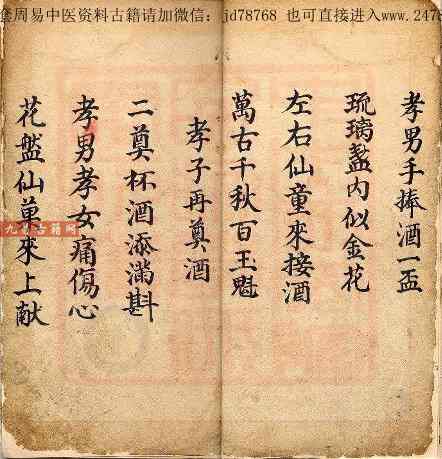 售周易中医资料古籍请加微信：jd78768 也可直接进入www.247
孝男手捧酒一盃
琉璃盞内似金花
左右仙童來接酒
萬古千秋百玉魁
孝子再奠酒
二奠杯酒添滿斟
孝男孝女痛傷心
花盤仙草來上献
九易古籍网